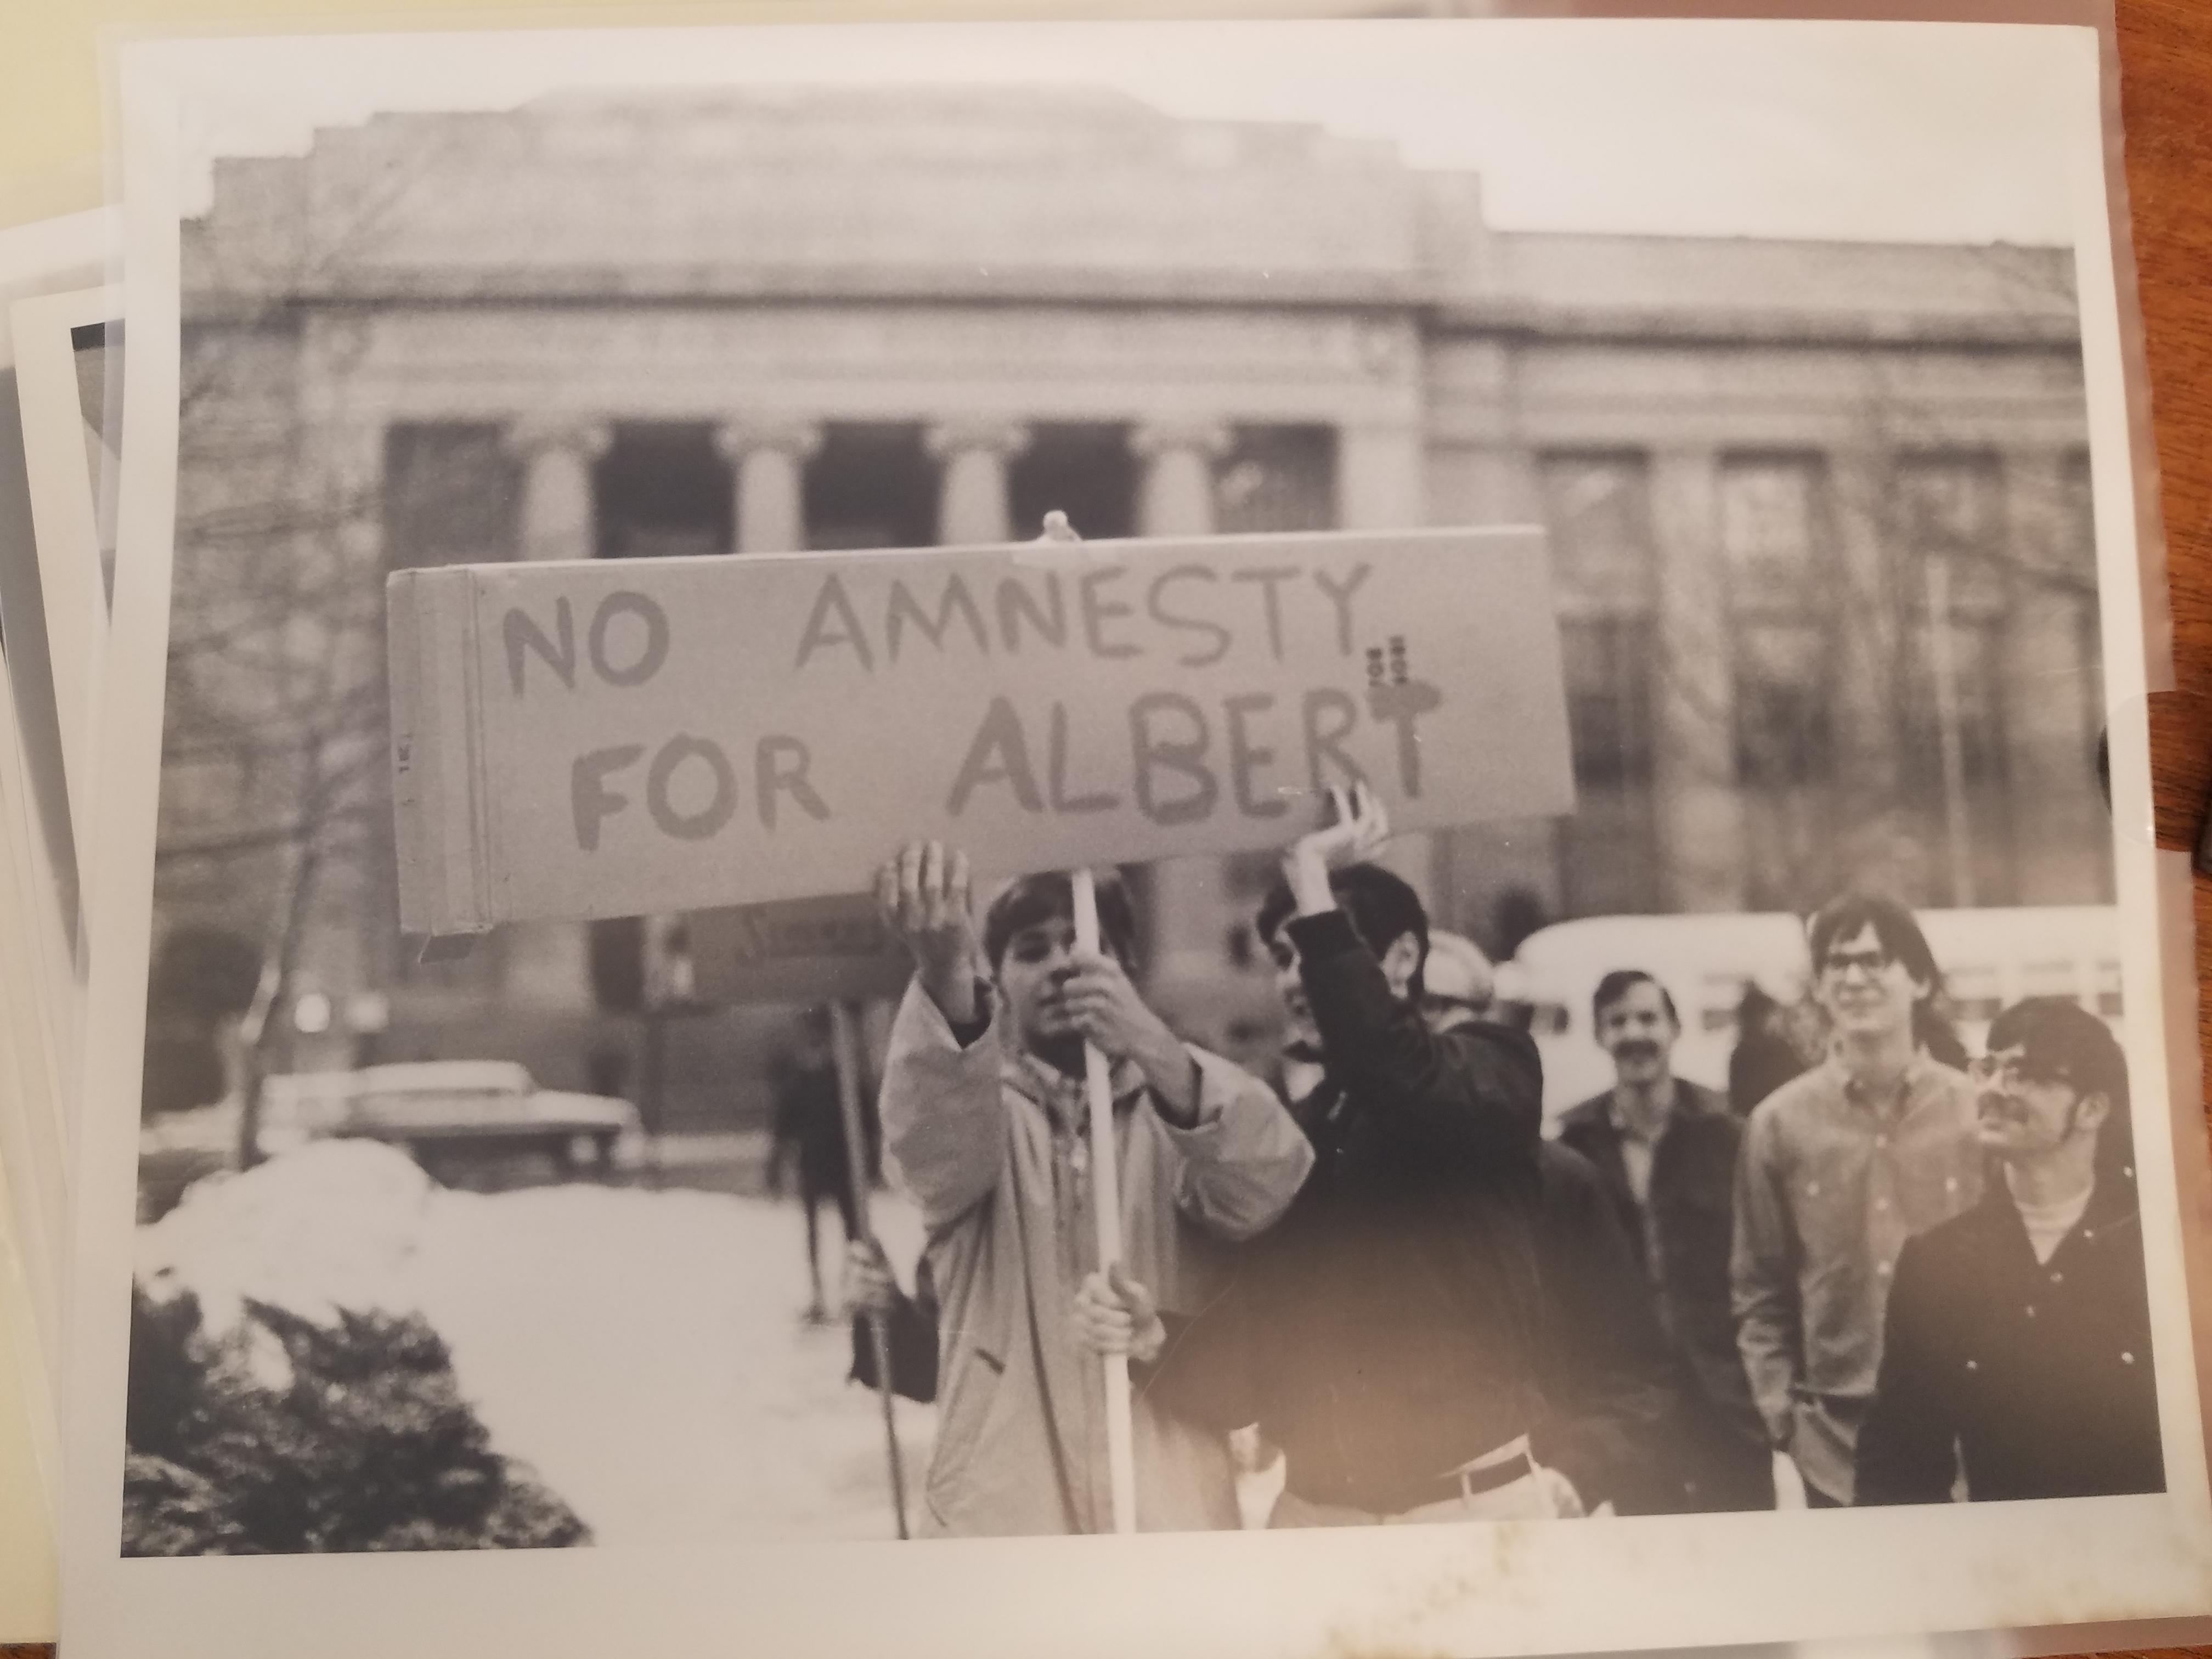 NO AMNESTY
FOR ALBERT